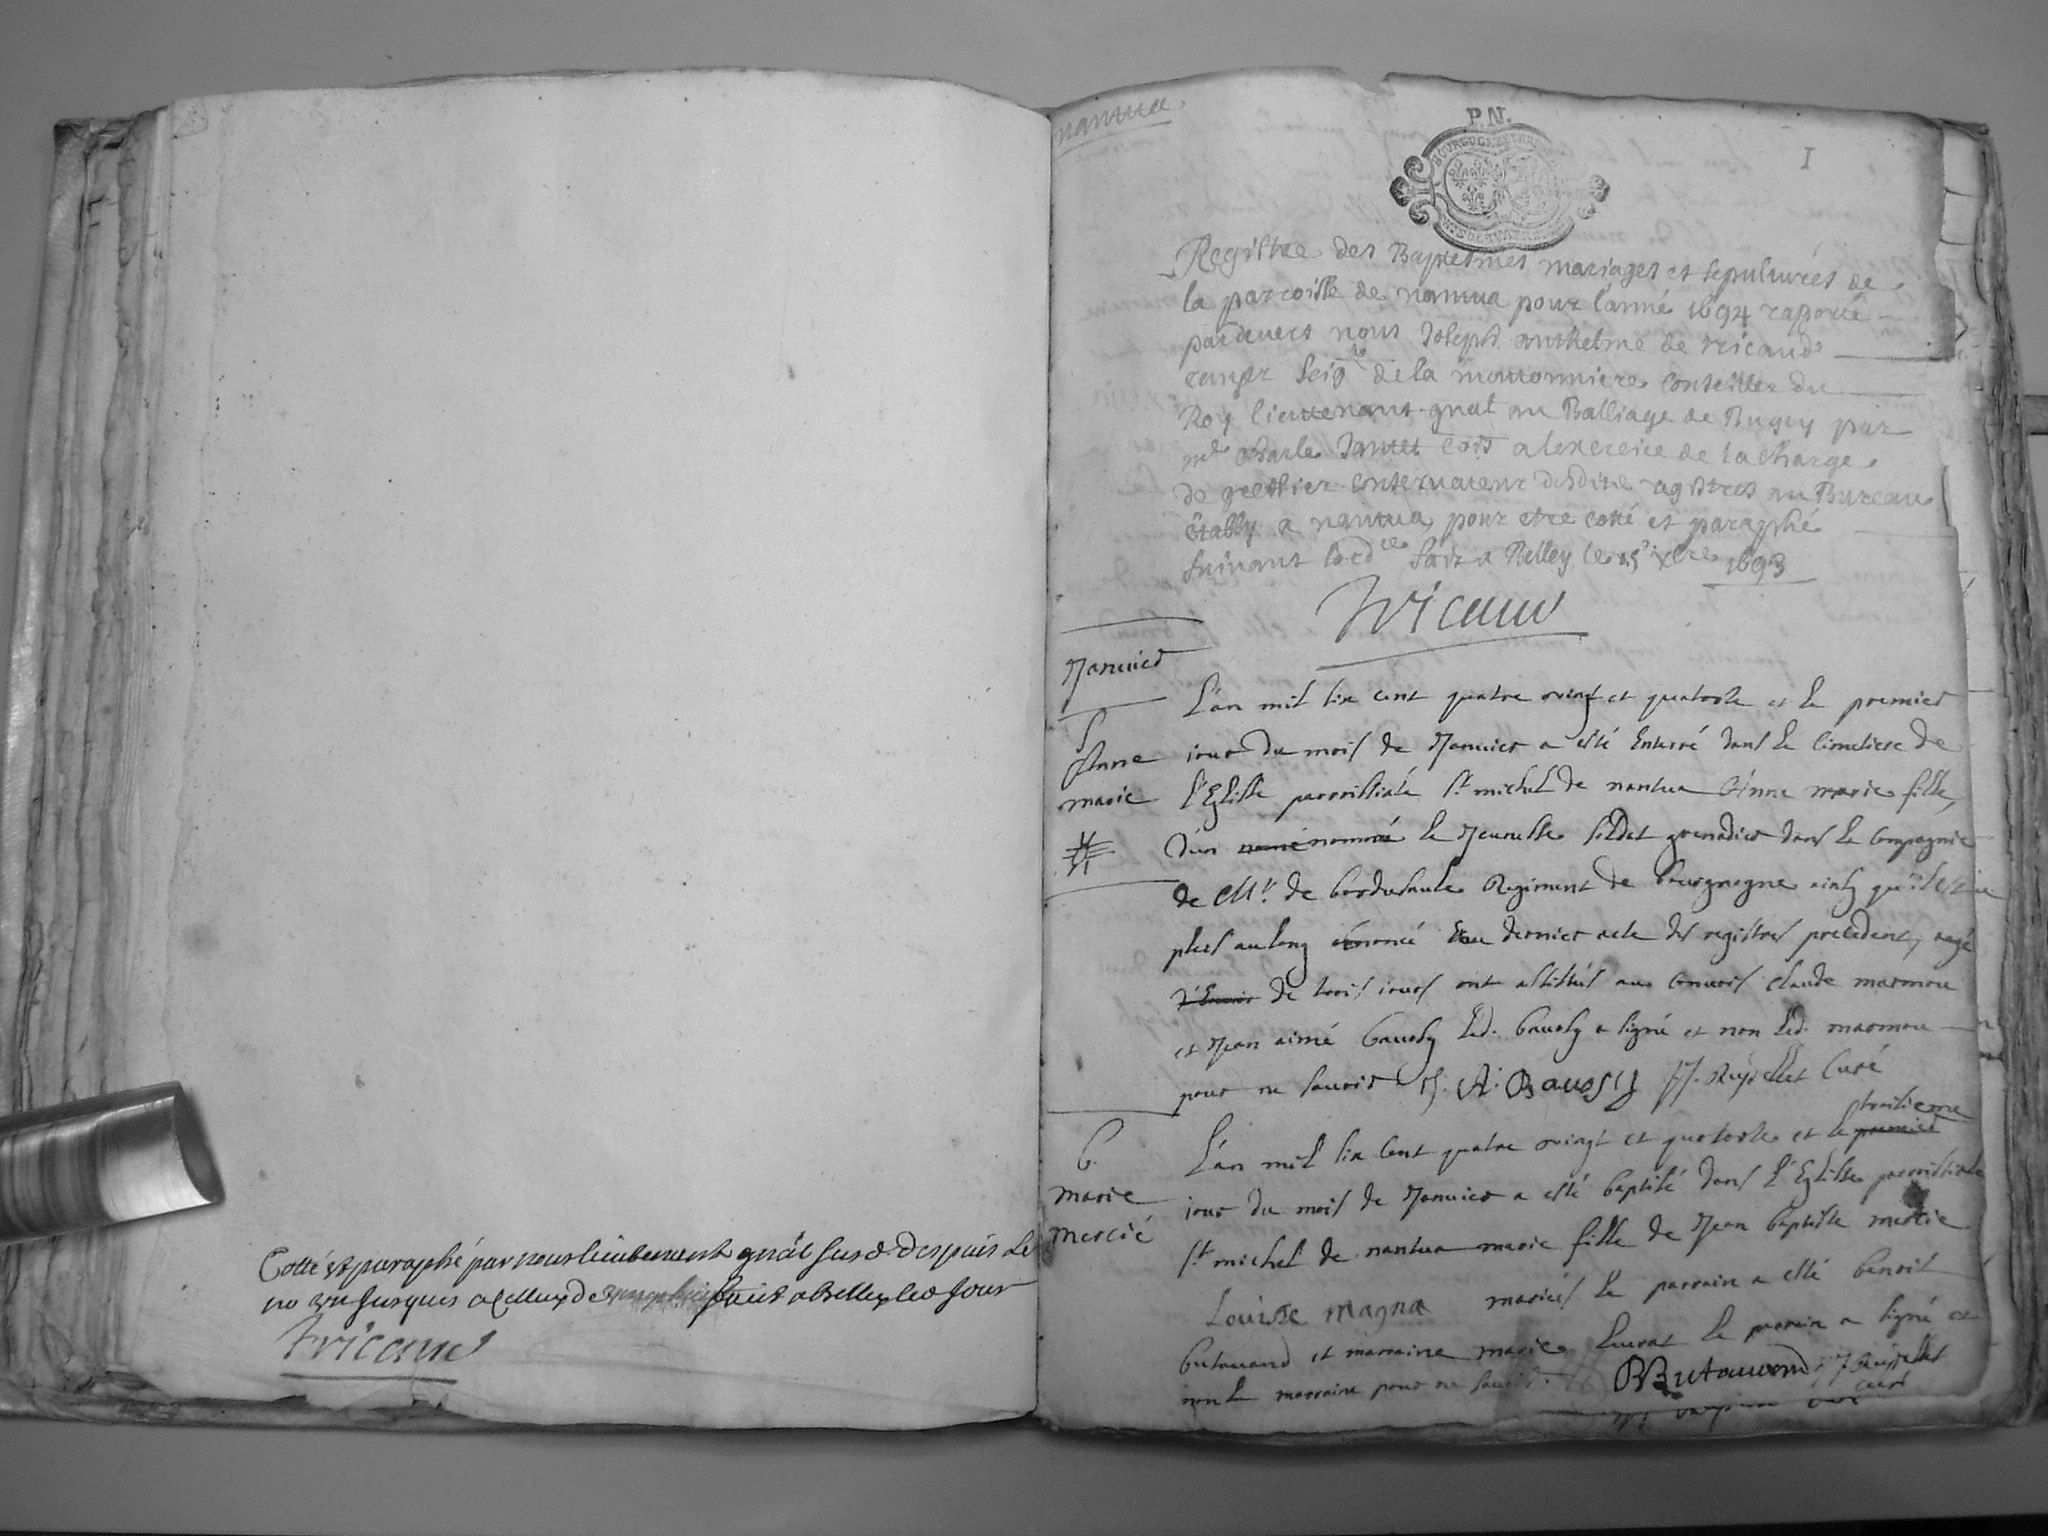 Cotté et paraphé par nous lieutenant gnãl susd. despuis le
no un jusques a celluy de fait a Belley led jour
Tricaud
nantua
P.N.
BOURGOGNE
I
Registre des Baptesmes mariages et sepulures de
la paroisse de nantua pour l'anné 1694 raporté
pardevers nous Joseph anthelme de tricaud
seigr de la conseiller du
Roy lieutenant gnal au Balliage de Bugey par
me Charle Jantet a lexercice de la charge
de greffier conservateur desdits registres au Bureau
étably a nantua pour etre cotté et paraphé
suivant fait a Belley le 15 xbre 1693
Tricaud
Janvier
L'an mil six cent quatre vingt et quatorse et le premier
S
Anne
jour du mois de Janvier a esté enterré dans le cimetiere de
marie
l'Eglisse parroissiale St michel de nantua Anne marie fille
d'un nommé nommé le Jeunesse soldat grenadier dans la compagnie
de Mr. de Regiment de bourgnogne ainsy qu'il est
plus au long énoncé au dernier acte des registres precedent, aagé
de trois jours ont assistés au convois Claude marmou
et Jean aimé bavosy led. bavosy a signé et non led. marmou
pour ne savoir J. A. Bavosy J. Curé
B.
L'an mil six cent quatre vingt et quatorse et le premier troisieme
marie
jour du mois de Janvier a esté baptisé dans l'Eglisse parroissiale
mercié
St michel de nantua marie fille de Jean baptiste mercie
Louise magna mariés le parrain a esté benoit
butavand et marraine marie le parrain a signé et
non la marraine pour ne savoir. BButavand J. curé